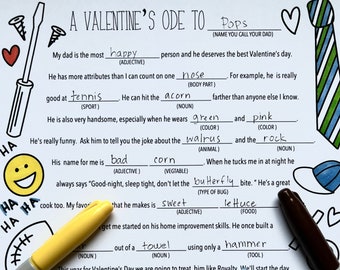 A VALENTINE'S ODE TO Pops
(NAME YOU CALL YOUR DAD)
My dad is the most happy person and he deserves the best Valentine's day.
(ADJECTIVE)
He has more attributes than I can count on one nose. For example, he is really
(BODY PART)
good at tennis. He can hit the acorn farther than anyone else I know.
(SPORT) (NOUN)
He is also very handsome, especially when he wears green and pink.
(COLOR) (COLOR)
He's really funny. Ask him to tell you the joke about the walrus and the rock.
(ANIMAL) (NOUN)
HA
HA
HA
His name for me is bad corn. When he tucks me in at night he
(ADJECTIVE) (VEGETABLE)
always says "Good-night, sleep tight, don't let the butterfly bite." He's a great
(TYPE OF BUG)
cook too. My favorite is sweet lettuce
(ADJECTIVE) (FOOD)
me get started on some home improvement skills. He once built a
out of a towel using only a hammer
(NOUN) (NOUN) (TOOL)
year for Valentine's Day we are going to treat him like Royalty. We'll start the day